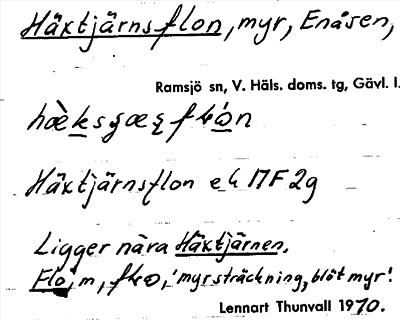 Häxtjärnsflon, myr, Enåsen,
Ramsjö sn, V. Häls. doms. tg, Gävl. l.
Häxtjärnsflon
Ligger nära Häxtjärnen.
Flo, m, 'myrsträckning, blöt myr'.
Lennart Thunvall 1970.